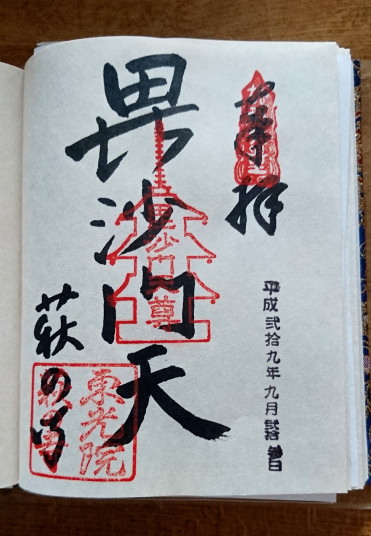 奉拝
平成弐拾九年九月弐拾参日
毘沙門天
萩の寺
東光院